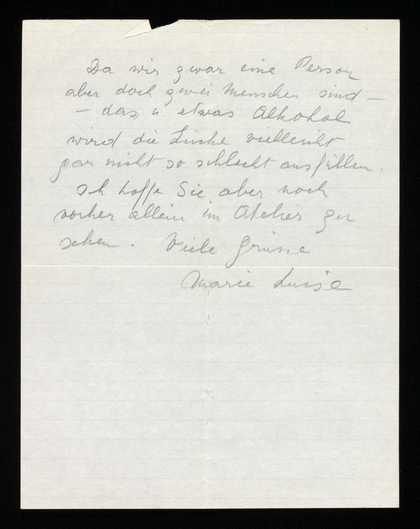 Da wir zwar eine Person
aber doch zwei Menschen sind –
– das u etwas Alkohol
wird die Lücke vielleicht
gar nicht so schlecht ausfüllen.
Ich hoffe Sie aber noch
vorher allein im Atelier zu
sehen. Viele Grüsse
Marie Luise